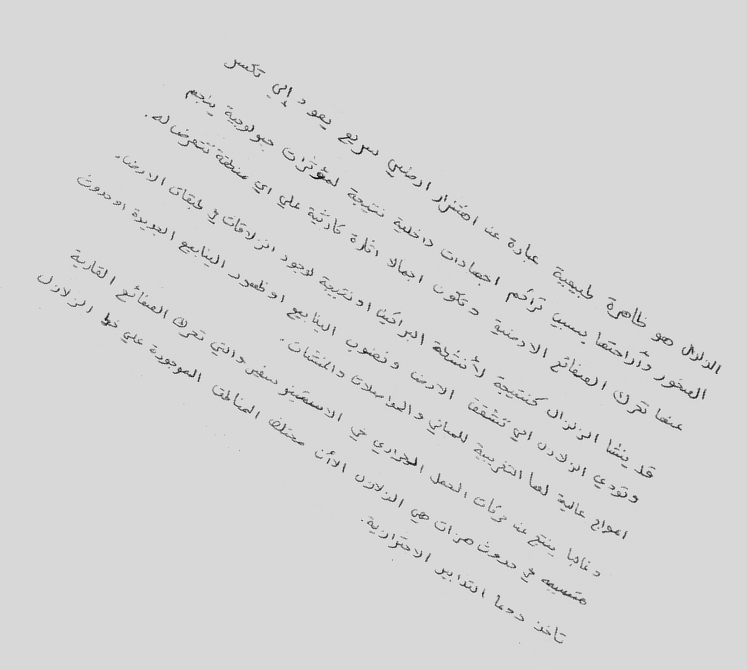 الزلال هو ظاهرة طبيعية عبارة عن اهتزاز ارضي سريع يعود إلي تكسر
الصخور وأزاحتها بسبب تراكم اجهادات داخلية نتيجة لمؤثرات جيولوجية ينجم
عنها تحرك الصفائح الارضية وتكون اجمالا اثارة كارثية علي اي منطقة تتعرض له.
قد ينشا الزلزال كنتيجة لأنشطة البراكين او نتيجة لوجود انزلاقات في طبقات الارض.
وتودي الزلازل الي تشقق الارض ونضوب الينابيع او ظهور الينابيع الجديدة او حدوث
امواج عالية لها التخريبية للمباني والمواصلات والمنشات.
وغالبا ينتج عن حركات الحمل الحراري في الاستينو سفير والتي تحرك الصفائح القارية
في حدوث هزات هي الزلازل الأن مختلف المناطق الموجودة علي خط الزلازل
تاخذ دوما التدابير الاحترازية.